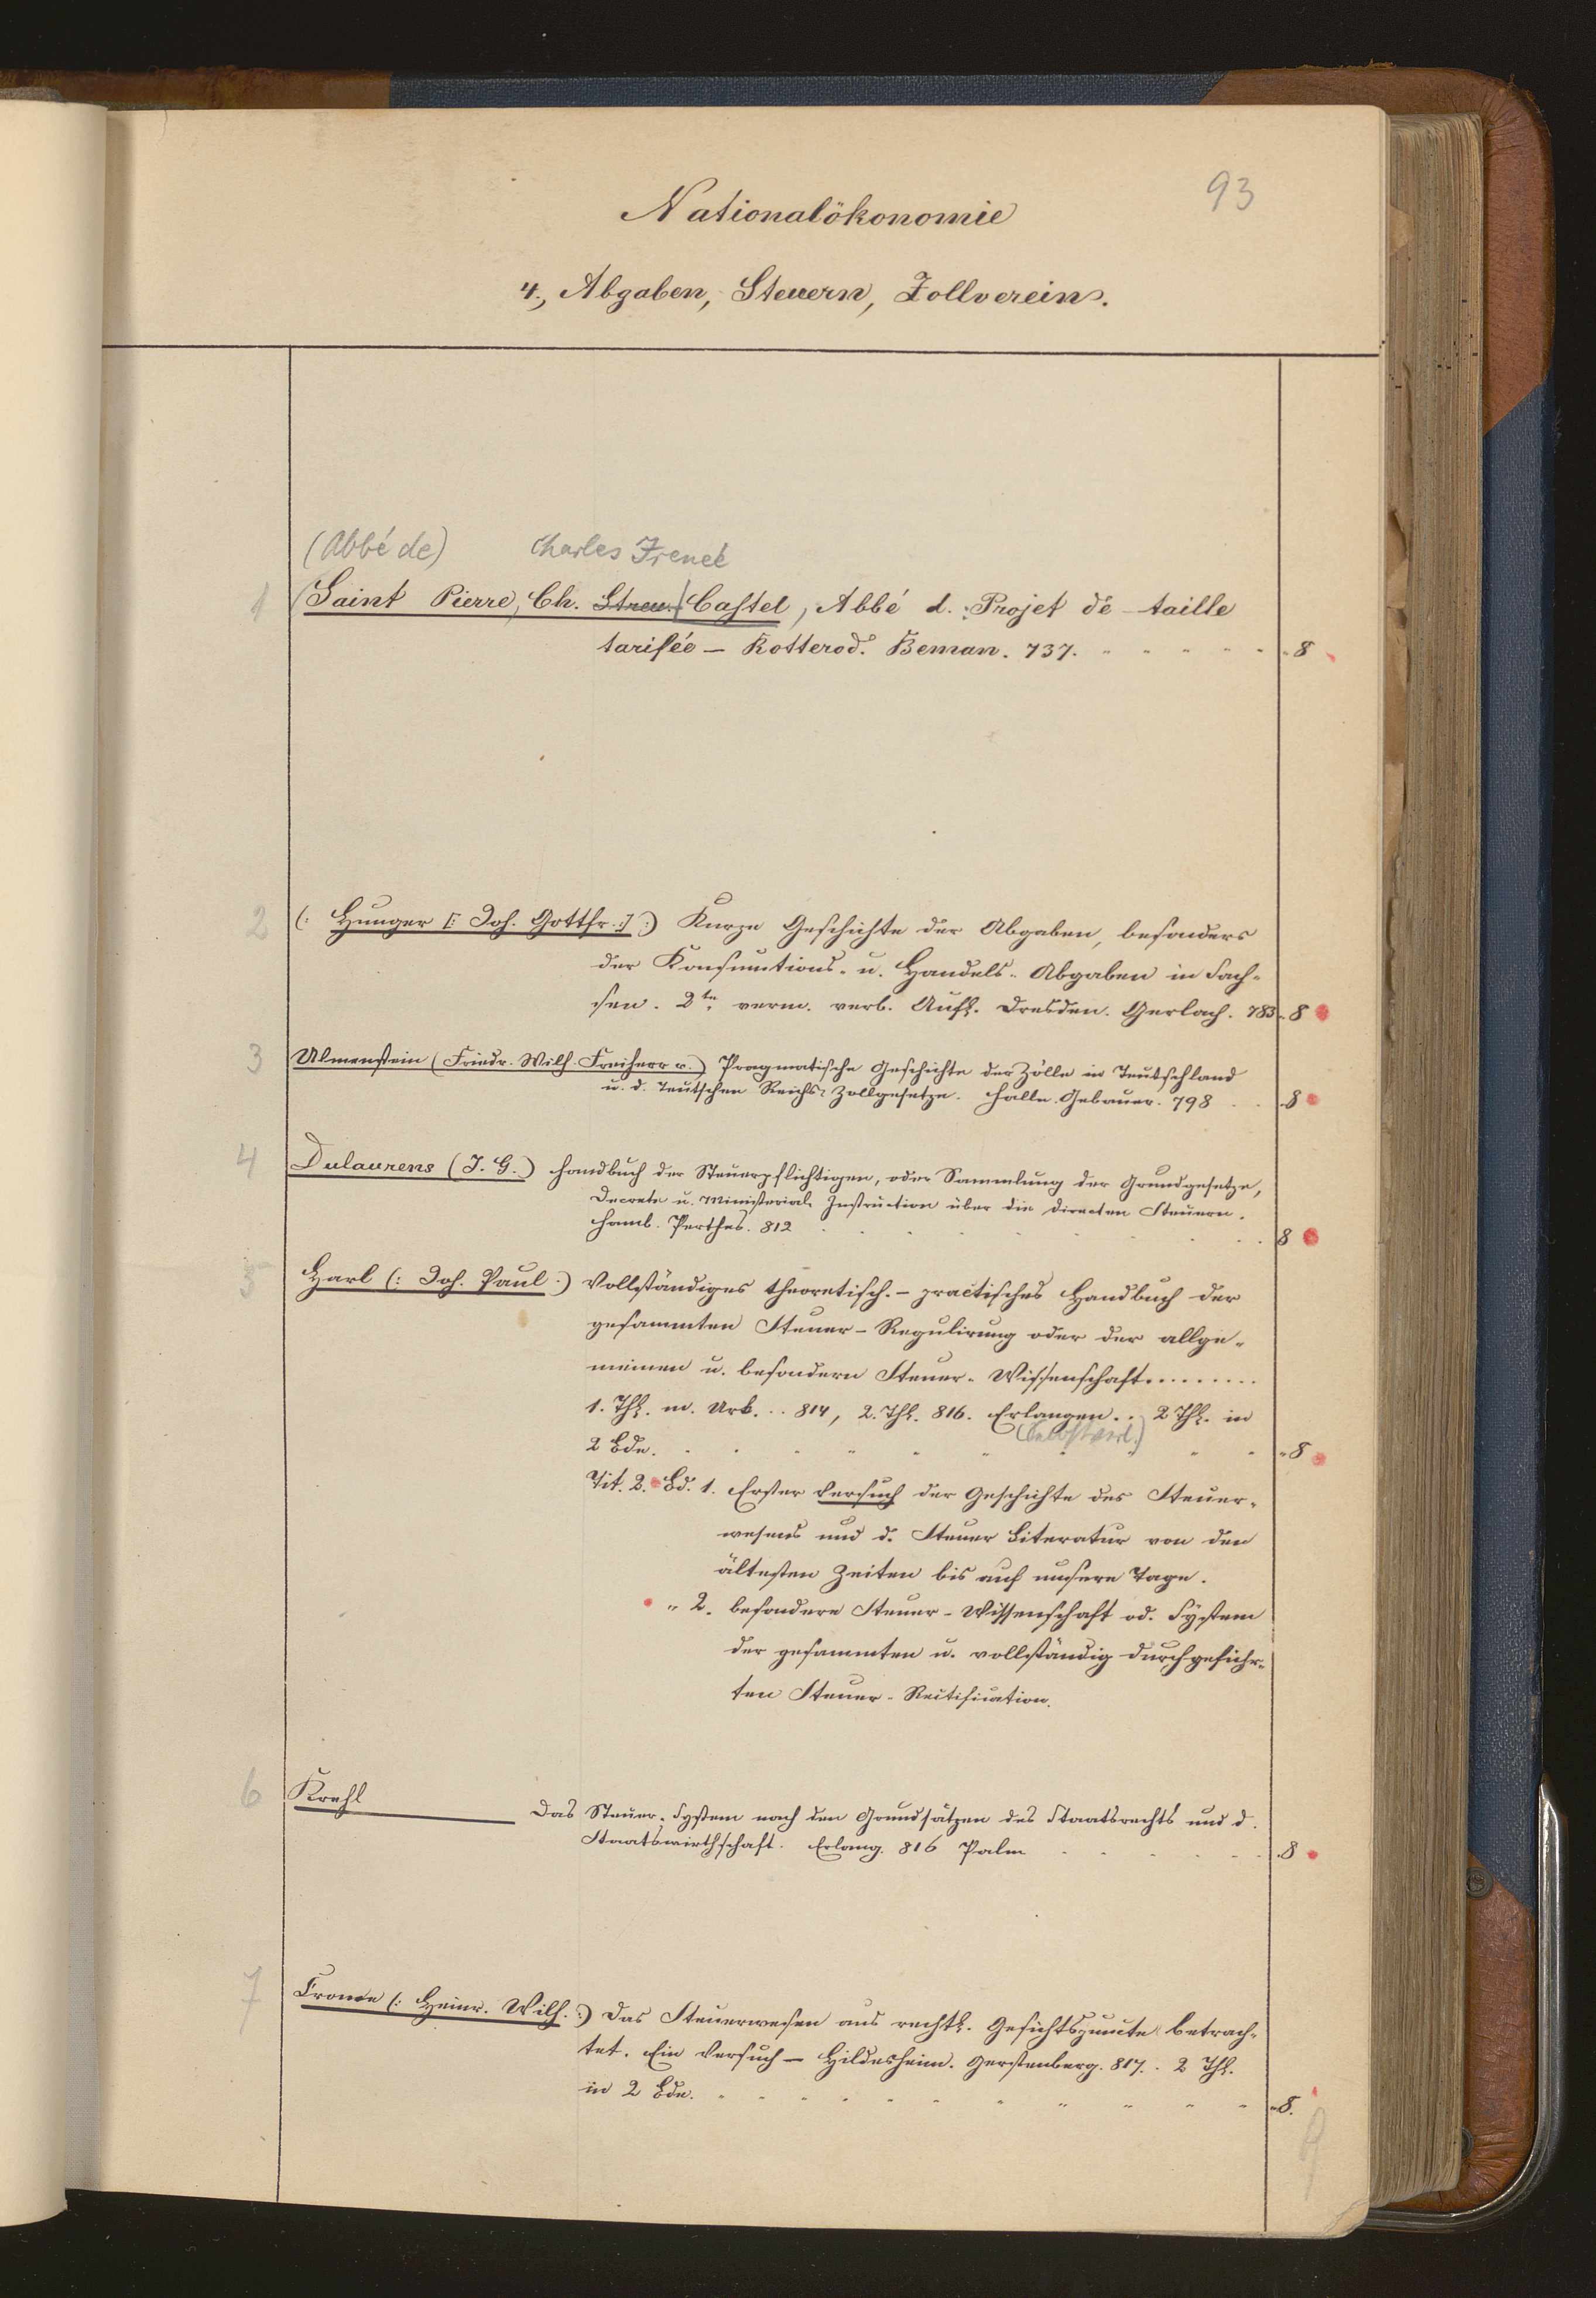 93
Nationalökonomie
4., Abgaben, Steuern, Zollverein.
(Abbé de) Charles Irenée
1 (Saint Pierre, Ch. Castel, Abbé d. Projet de taille
tarifée – Rotterod. Beman. 737. 8
2 (: Hunger [: Joh. Gottfr. :] :) Kurze Geschichte der Abgaben, besonders
der Konsumtions- u. Handels-Abgaben in Sach-
sen. 2te verm. verb. Aufl. Dresden. Gerlach. 783 8
3 Ulmenstein (Friedr. Wilh. Freiherr v.) Pragmatische Geschichte der Zölle in Teutschland
u. d. Teutschen Reichs-Zollgesetze. Halle. Gebauer. 798 8
4 Dulaurens (J. G.) Handbuch der Steuerpflichtigen, oder Sammlung der Grundgesetze,
Decrete u. Ministerial Instruction über die directen Steuern.
Hamb. Perthes. 812 8
5 Harl (: Joh. Paul :) Vollständiges theoretisch.-practisches Handbuch der
gesammten Steuer-Regulirung oder der allge-
meinen u. besondern Steuer-Wissenschaft.........
1. Thl. m. Urk. .. 814, 2. Thl. 816. Erlangen. .. 2 Thl. in
(Selbstverl.)
2 Bde. 8
Tit. 2. Bd. 1. Erster Versuch der Geschichte des Steuer-
wesens und d. Steuer Literatur von den
ältesten Zeiten bis auf unsere Tage.
" 2. besondere Steuer-Wissenschaft od. System
der gesammten u. vollständig durchgeführ-
ten Steuer-Rectification.
6 Krehl Das Steuer-System nach den Grundsätzen des Staatsrechts und d.
Staatswirthschaft. Erlang. 816 Palm 8
7 Crome (: Heinr. Wilh. :) Das Steuerwesen aus rechtl. Gesichtspuncte betrach-
tet. Ein Versuch – Hildesheim. Gerstenberg. 817. . 2 Thl.
in 2 Bde. 8.